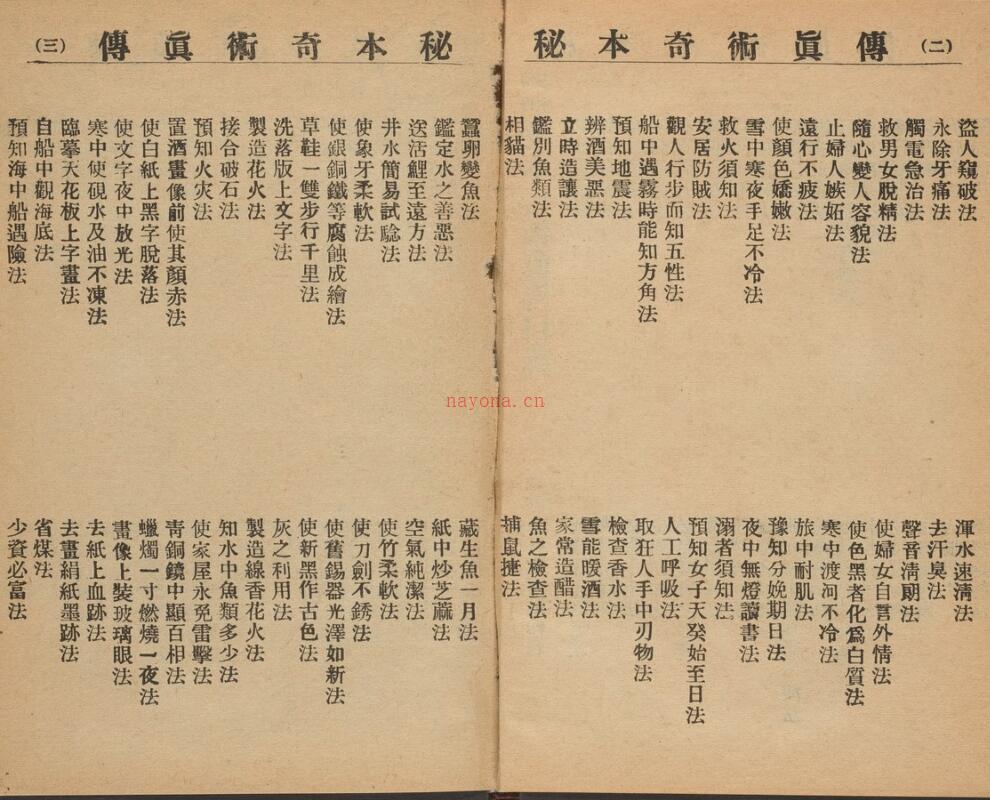 秘本奇術眞傳 (二)
盜人窺破法
永除牙痛法
觸電急治法
救男女脫精法
隨心變人容貌法
止婦人嫉妬法
遠行不疲法
使顏色嬌嫩法
雪中寒夜手足不冷法
救火須知法
安居防賊法
觀人行步而知五性法
船中遇霧時能知方角法
預知地震法
辨酒美惡法
立時造讓法
鑑別魚類法
相貓法
渾水速淸法
去汗臭法
聲音淸朗法
使婦女自言外情法
使色黑者化爲白質法
寒中渡河不冷法
旅中耐肌法
豫知分娩期日法
夜中無燈讀書法
溺者須知法
預知女子天癸始至日法
人工呼吸法
取狂人手中刃物法
檢查香水法
雪能暖酒法
家常造醋法
魚之檢查法
捕鼠捷法
秘本奇術眞傳 (三)
蠶卵變魚法
鑑定水之善惡法
送活鯉至遠方法
井水簡易試騐法
使象牙柔軟法
使銀銅鐵等腐蝕成繪法
草鞋一雙步行千里法
洗落版上文字法
製造花火法
接合破石法
預知火灾法
置酒畫像前使其顏赤法
使白紙上黑字脫落法
使文字夜中放光法
寒中使硯水及油不凍法
臨摹天花板上字畫法
自船中觀海底法
預知海中船遇險法
藏生魚一月法
紙中炒芝蔴法
空氣純潔法
使竹柔軟法
使刀劍不銹法
使舊錫器光澤如新法
使新黑作古色法
灰之利用法
製造線香花火法
知水中魚類多少法
使家屋永免雷擊法
靑銅鏡中顯百相法
蠟燭一寸燃燒一夜法
畫像上裝玻璃眼法
去紙上血跡法
去畫絹紙墨跡法
省煤法
少資必富法
nayona.cn